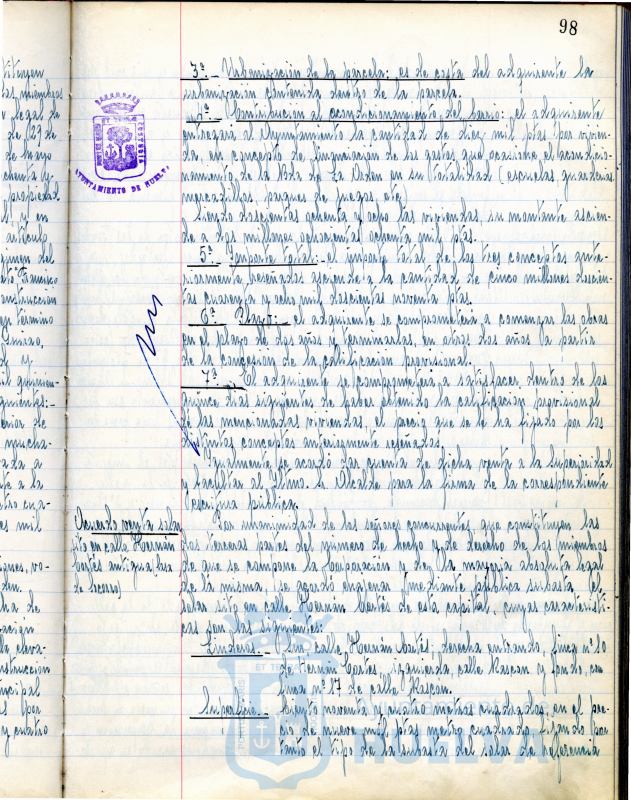 98
3ª.- Urbanización de la parcela: es de costa del adquirente la
urbanización contenida dentro de la parcela.
4ª. Contribución al acondicionamiento del barrio: el adquirente
entregará al Ayuntamiento la cantidad de diez mil ptas por vivien-
da, en concepto de financiación de los gastos que ocasione el acondicio-
namiento de la Vda de La Orden en su totalidad (escuelas, guarderías,
mercadillos, parques de juegos, etc)
Siendo doscientas ochenta y ocho las viviendas, su montante ascien-
de a dos millones ochocientas ochenta mil ptas.
5ª. Importe total: el importe total de los tres conceptos ante-
riormente reseñados asciende a la cantidad de cinco millones doscien-
tas cuarenta y ocho mil doscientas noventa ptas.
6ª. Plazo: el adquirente se comprometerá a comenzar las obras
en el plazo de dos años y terminarlas, en otros dos años (a partir
de la concesión de la calificación provisional.
7ª. El adquirente se comprometerá a satisfacer dentro de los
quince días siguientes de haber obtenido la calificación provisional
de las mencionadas viviendas, el precio que se le ha fijado por los
distintos conceptos anteriormente reseñados.
Igualmente se acordó dar cuenta de dicha venta a la Superioridad
y facultar al Iltmo. Sr. Alcalde para la firma de la correspondiente
escritura pública.
Acuerdo venta solar
sito en calle Hernán
Cortés antigua Casa
de Socorro)
Por unanimidad de los señores concurrentes, que constituyen las
dos terceras partes del número de hecho y de derecho de los miembros
de que se compone la Corporación y de la mayoría absoluta legal
de la misma, se acordó enajenar mediante pública subasta, el
solar sito en calle Hernán Cortés de esta capital, cuyas característi-
cas son las siguientes:
Linderos.- Sur calle Hernán Cortés; derecha entrando, finca nº 10
de Hernán Cortés, izquierda, calle Rascon y fondo, con
finca nº 17 de calle Rascon.
Superficie.- Ciento noventa y cuatro metros cuadrados, en el pre-
cio de nueve mil ptas metro cuadrado, fijando por
tanto el tipo de la subasta del solar de referencia
AYUNTAMIENTO DE HUELVA